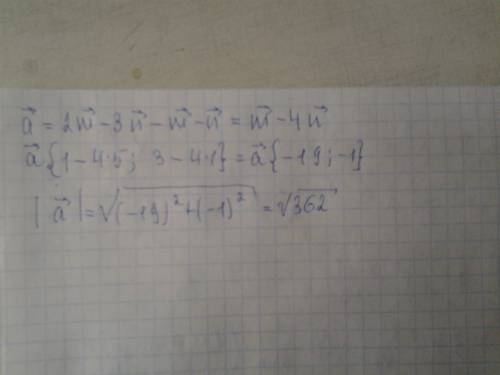 a⃗ = 2m⃗ - 3n⃗ - m⃗ - n⃗ = m⃗ - 4n⃗
a⃗ {1 - 4·5; 3 - 4·1} = a⃗ {-19; -1}
| a⃗ | = √(-19)² + (-1)² = √362